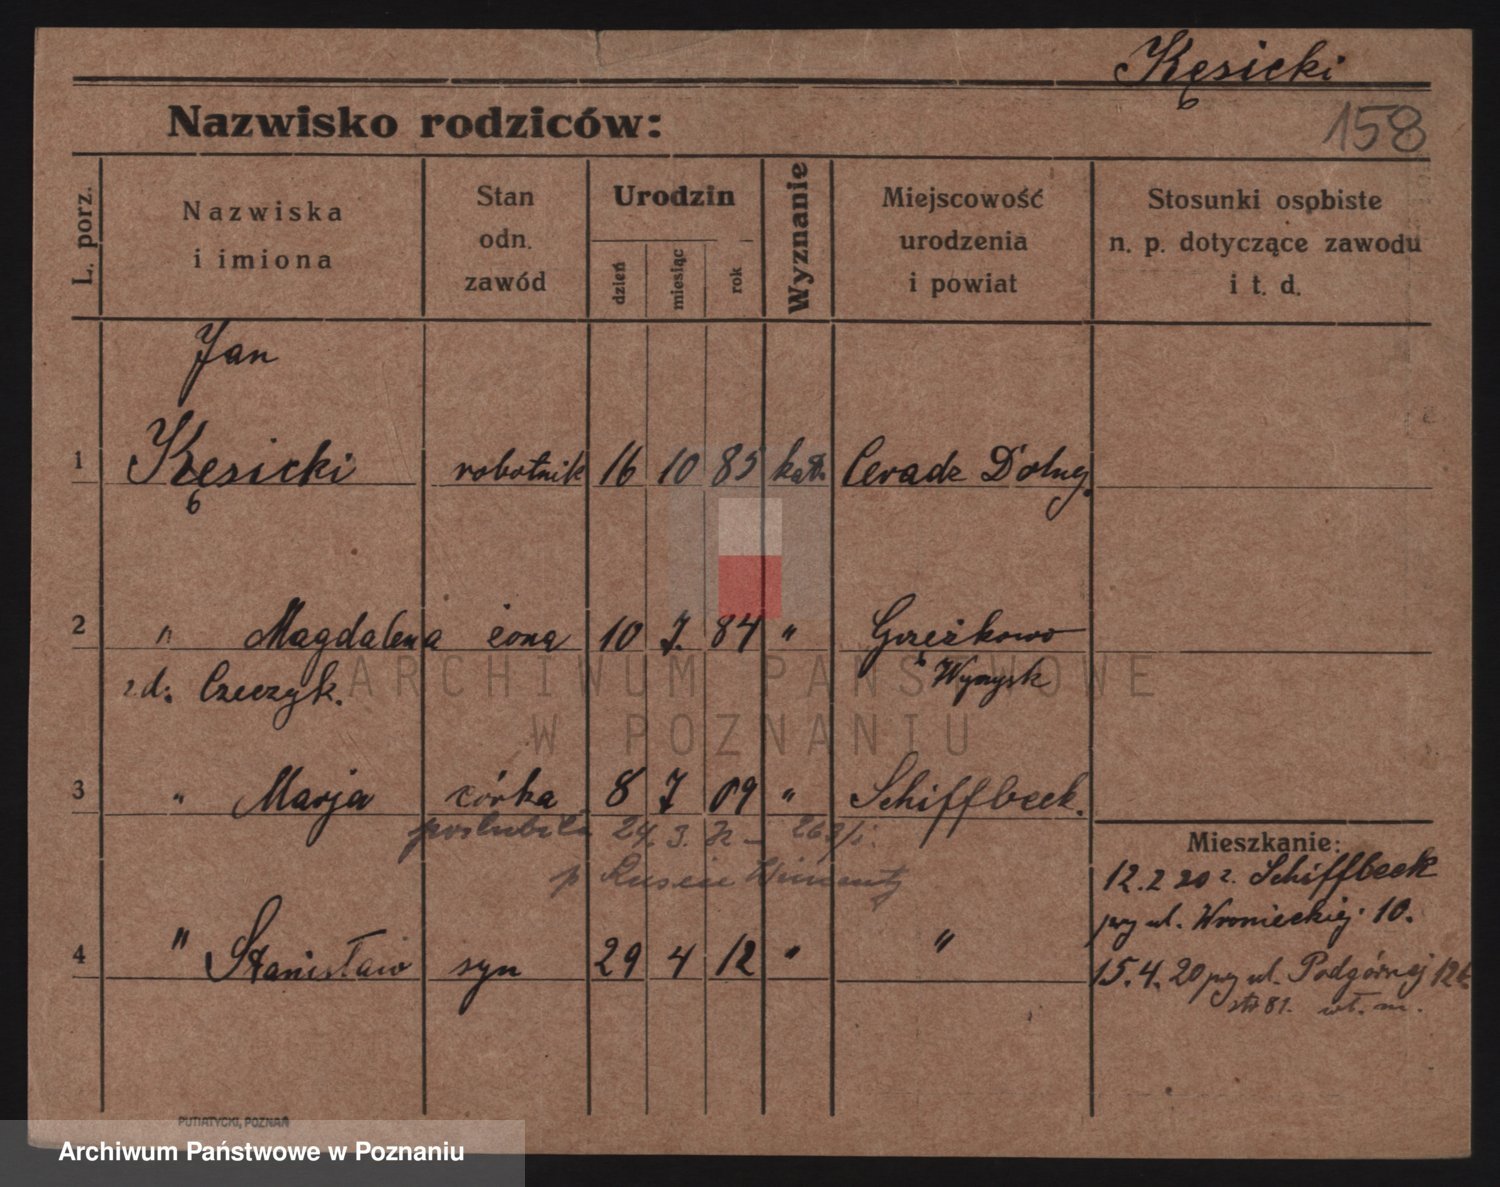 Kęsicki
158
Nazwisko rodziców:
L. porz.
Nazwiska
i imiona
Stan
odn.
zawód
Urodzin
dzień
miesiąc
rok
Wyznanie
Miejscowość
urodzenia
i powiat
Stosunki osobiste
n. p. dotyczące zawodu
i t. d.
Jan
1 Kęsicki robotnik 16 10 85 kath. Ceradz Dolny.
2 " Magdalena żona 10 7. 84 "
zd. Czeczyk. Wyrzysk
3 " Marja córka 8 7 09 " Schiffbeck.
poślubiła 24 3.
Mieszkanie:
12.2 20 z. Schiffbeck
przy ul. Wronieckiej 10.
4 " Stanisław syn 29 4 12 " "
15.4.20 przy ul. Podgórnej 12b
wł. m.
ARCHIWUM PAŃSTWOWE
W POZNANIU
PUTIATYCKI, POZNAŃ
Archiwum Państwowe w Poznaniu